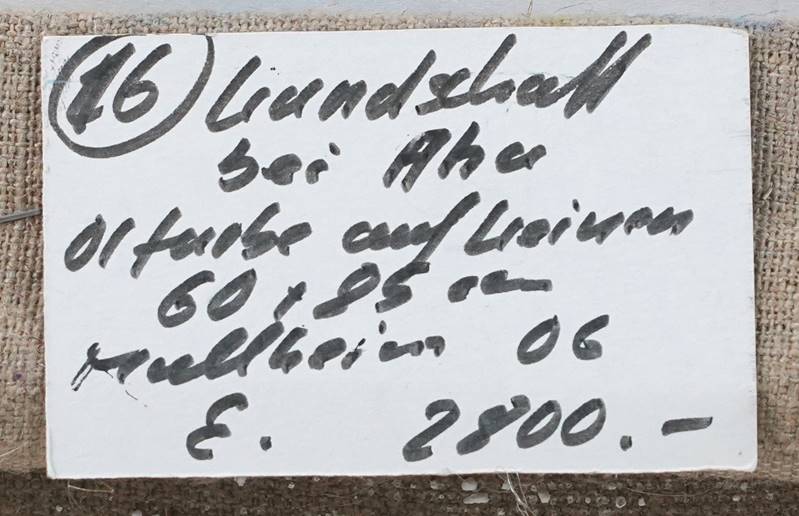 16 Landschaft
bei Aha
Ölfarbe auf Leinen
60 x 85 cm
Müllheim 06
E. 2800.-